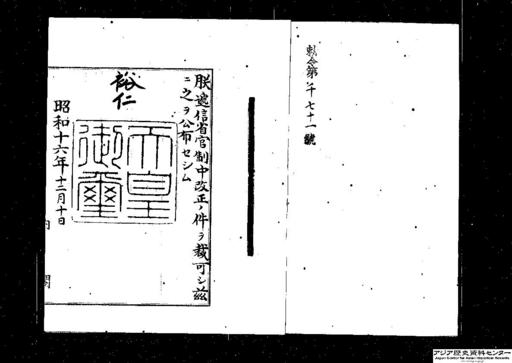 勅令第千七十一號
朕遞信省官制中改正ノ件ヲ裁可シ茲
ニ之ヲ公布セシム
裕仁
天皇
御璽
昭和十六年十二月十日
内閣
アジア歴史資料センター
Japan Center for Asian Historical Records